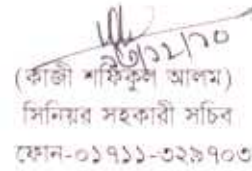 ২৬/১২/১০
(কাজী শফিকুল আলম)
সিনিয়র সহকারী সচিব
ফোন-০১৭১১-৩২৯৭০৩